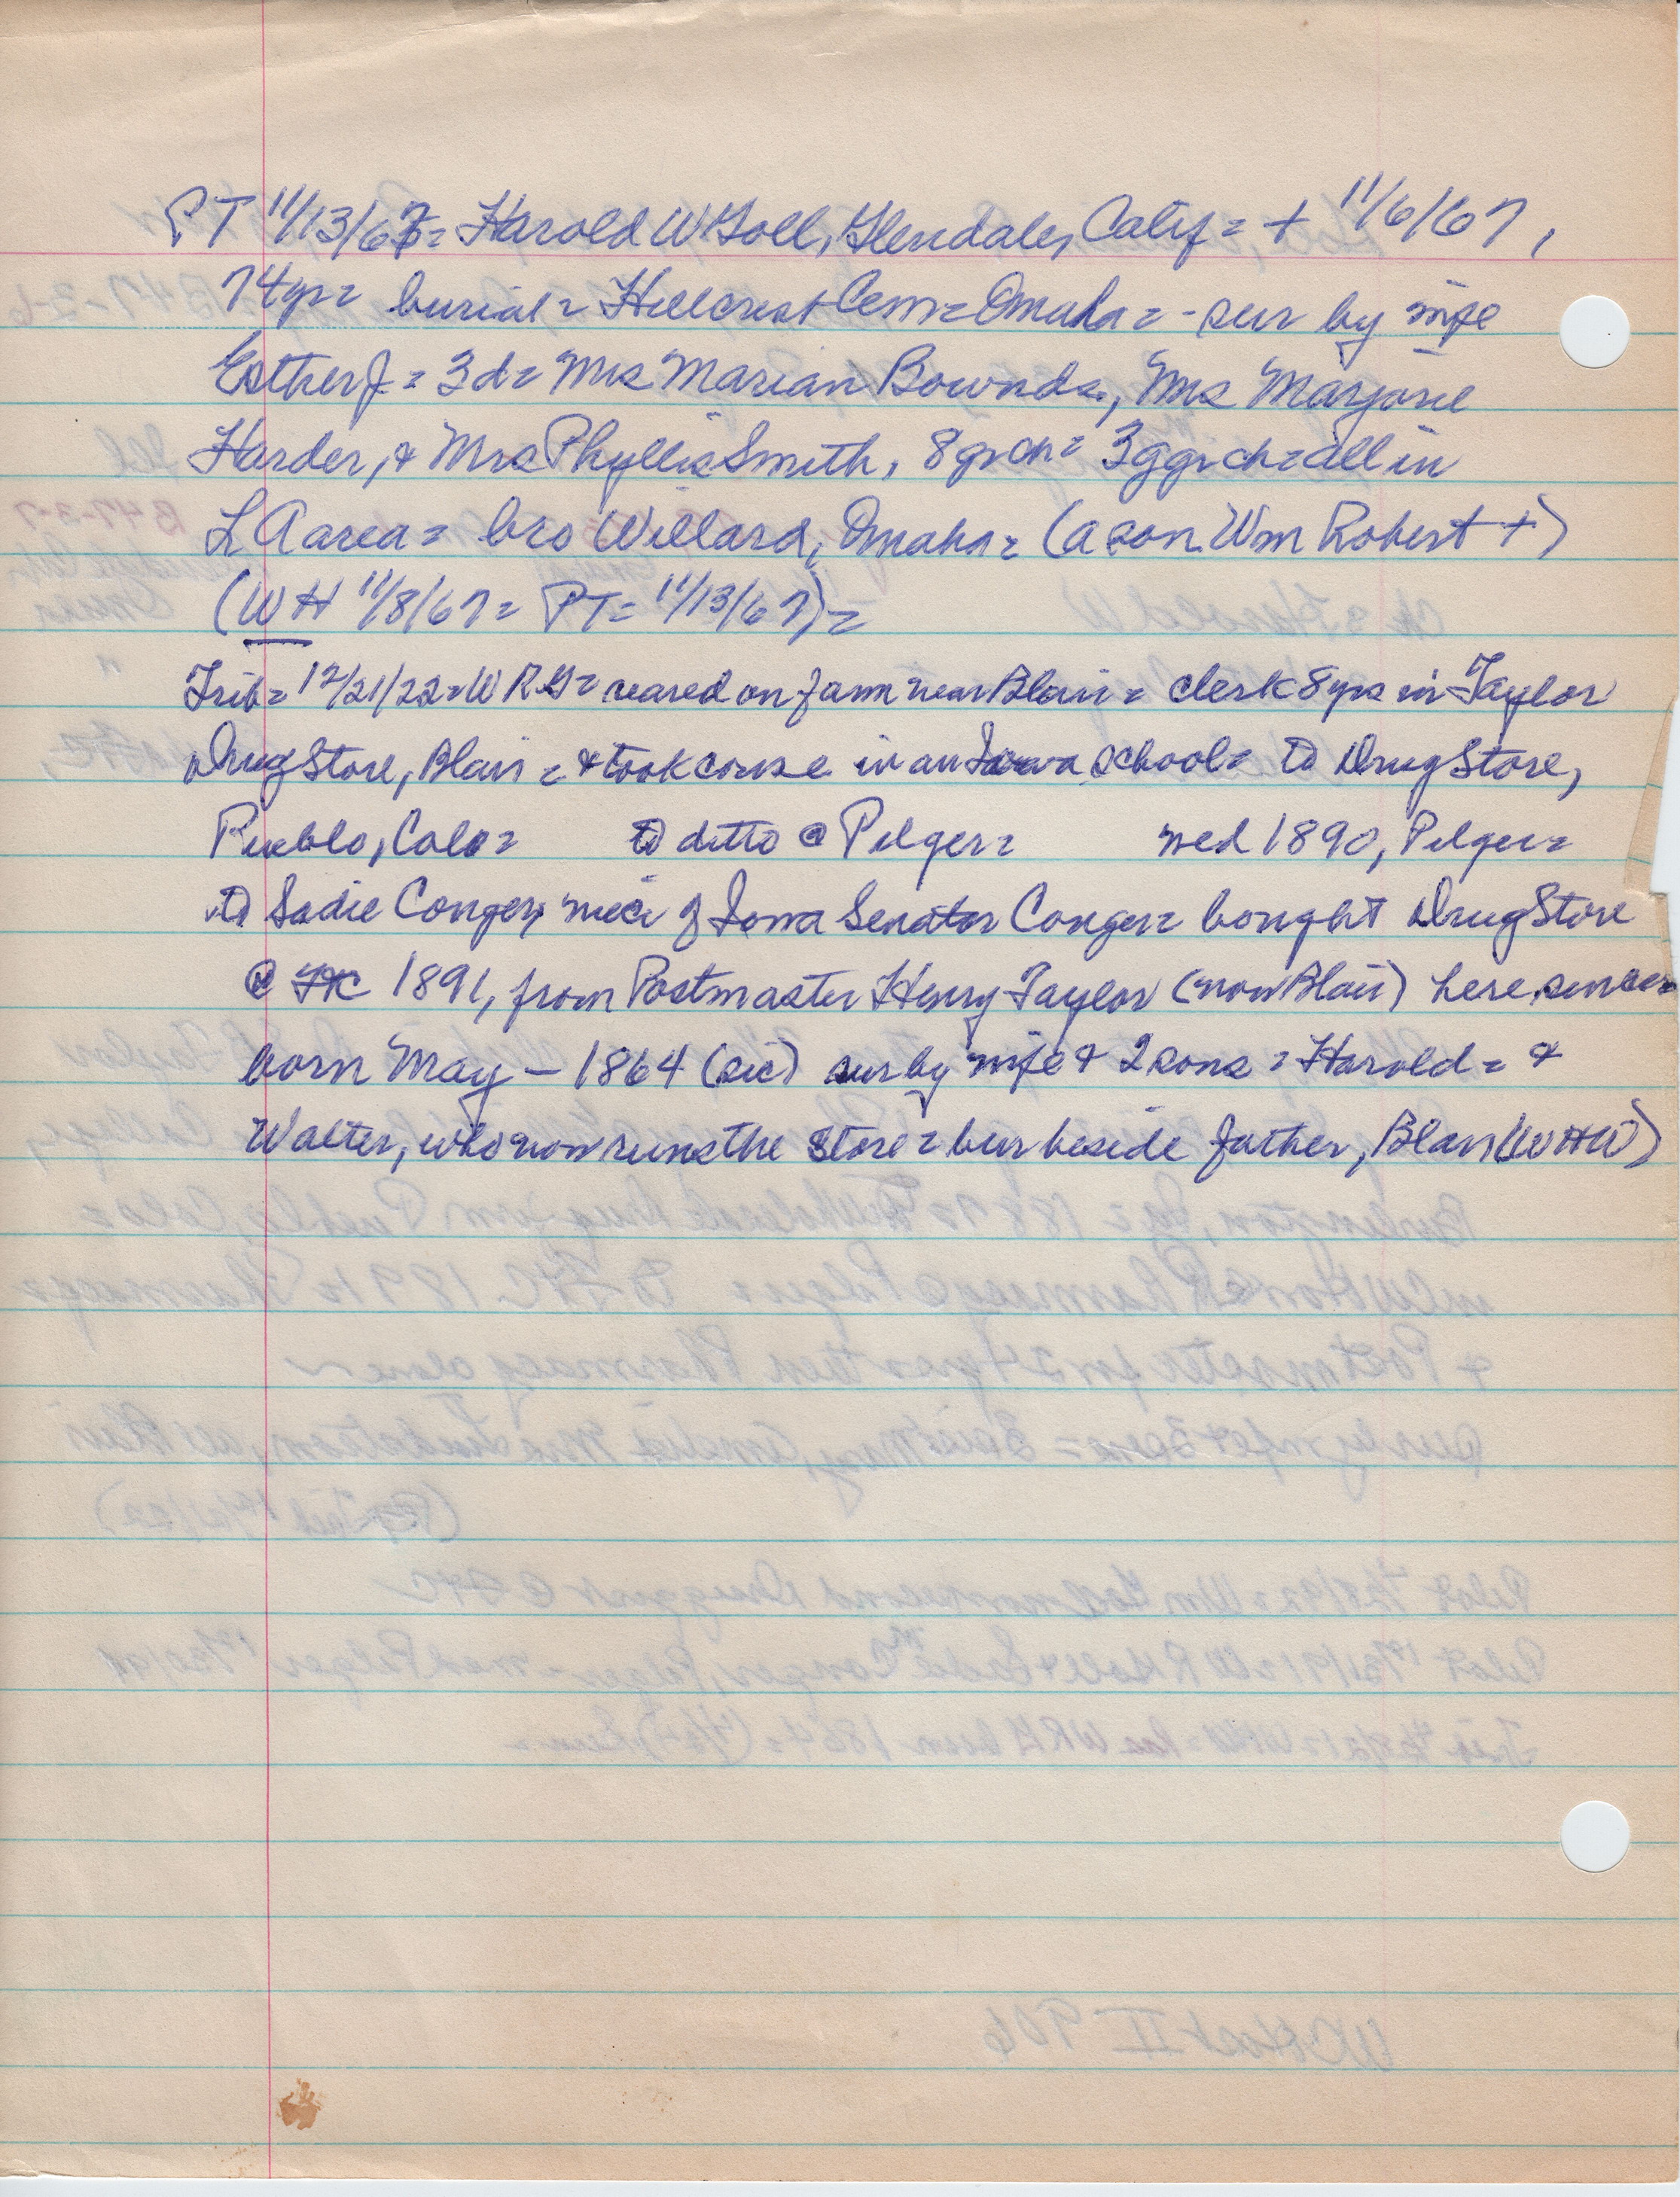 PT 11/13/67= Harold W Goll, Glendale, Calif = + 11/6/67,
74yr= burial= Hillcrest Cem= Omaha= - sur by wife
Esther J = 3d= Mrs Marian Bownds, Mrs Marjorie
Harder, & Mrs Phyllis Smith, 8 gr ch= 3 ggr ch= all in
L A area= bro Willard, Omaha= (a son Wm Robert +)
(WH 11/8/67= PT= 11/13/67)=
Trib= 12/21/22= W R G= reared on farm near Blair= clerk 8 yrs in Taylor
Drug Store, Blair = & took course in an Iowa school= to Drug Store,
Pueblo, Colo= to ditto @ Pilger= wed 1890, Pilger=
to Sadie Conger, niece of Iowa Senator Conger= bought Drug Store
@ 1891, from Postmaster Henry Taylor (now Blair) here since=
born May - 1864 (sic) sur by wife & 2 sons = Harold = &
Walter, who now runs the store = bur beside father, Blair (WHW)